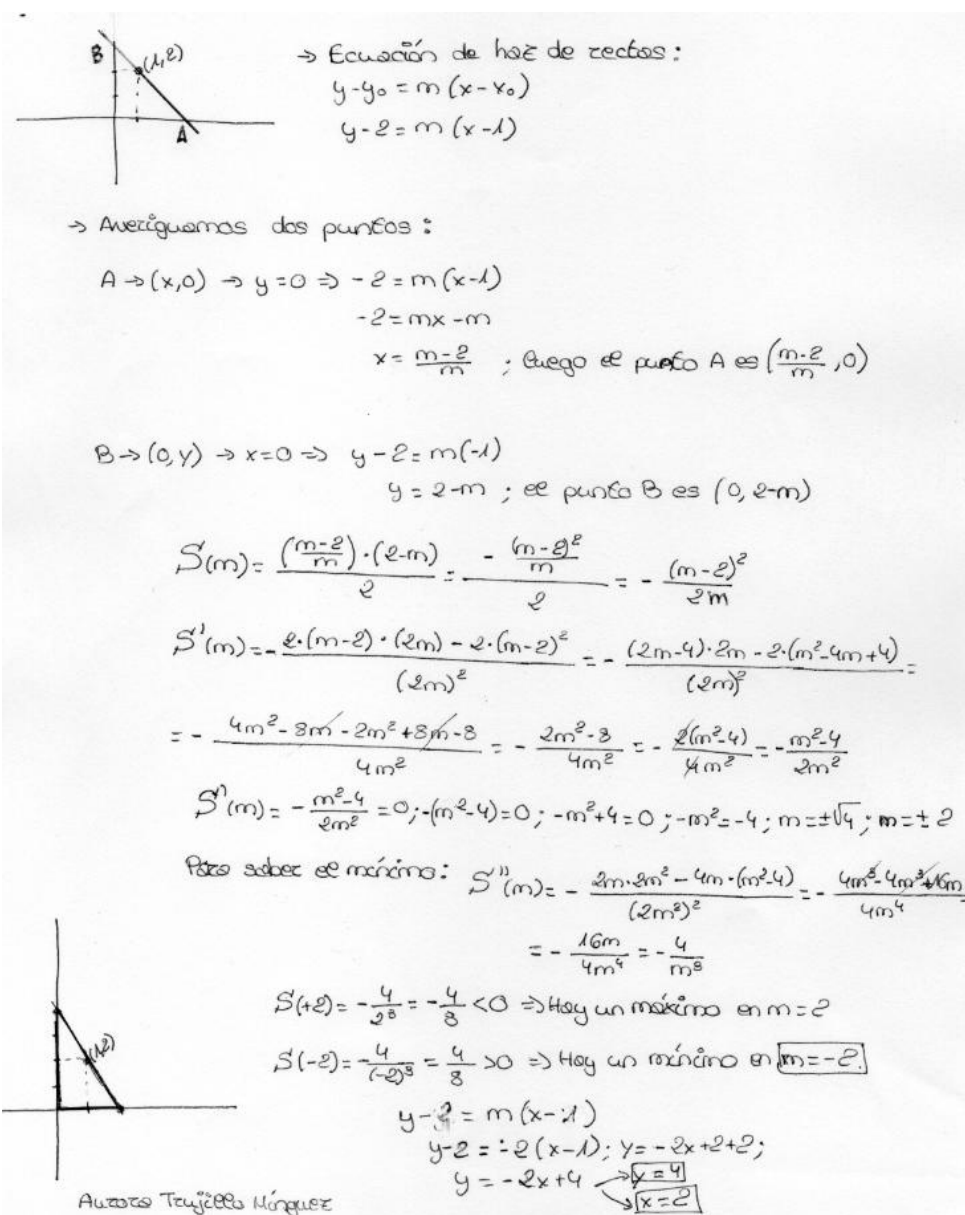 B (1,2)
A
→ Ecuación de haz de rectas:
y-y₀ = m(x-x₀)
y-2 = m(x-1)
→ Averiguamos dos puntos:
A → (x,0) → y=0 ⇒ -2 = m(x-1)
-2 = mx - m
x = (m-2)/m ; luego el punto A es ((m-2)/m, 0)
B → (0,y) → x=0 ⇒ y-2 = m(-1)
y = 2-m ; el punto B es (0, 2-m)
S(m) = (((m-2)/m)·(2-m))/2 = (-(m-2)²/m)/2 = -(m-2)²/2m
S'(m) = -(2·(m-2)·(2m) - 2·(m-2)²)/(2m)² = -((2m-4)·2m - 2·(m²-4m+4))/(2m)² =
= -(4m²-8m-2m²+8m-8)/4m² = -(2m²-8)/4m² = -2(m²-4)/4m² = -(m²-4)/2m²
S'(m) = -(m²-4)/2m² = 0 ; -(m²-4)=0 ; -m²+4=0 ; -m²=-4 ; m=±√4 ; m=±2
Para saber el mínimo: S''(m) = -(2m·2m² - 4m·(m²-4))/(2m²)² = -(4m³-4m³+16m)/4m⁴
= -16m/4m⁴ = -4/m³
S(+2) = -4/2³ = -4/8 <0 ⇒ Hay un máximo en m=2
S(-2) = -4/(-2)³ = 4/8 >0 ⇒ Hay un mínimo en m=-2.
(1,2)
y-2 = m(x-1)
y-2 = -2(x-1) ; y = -2x+2+2;
y = -2x+4 → y=4
→ x=2
Aurora Trujillo Mínguez